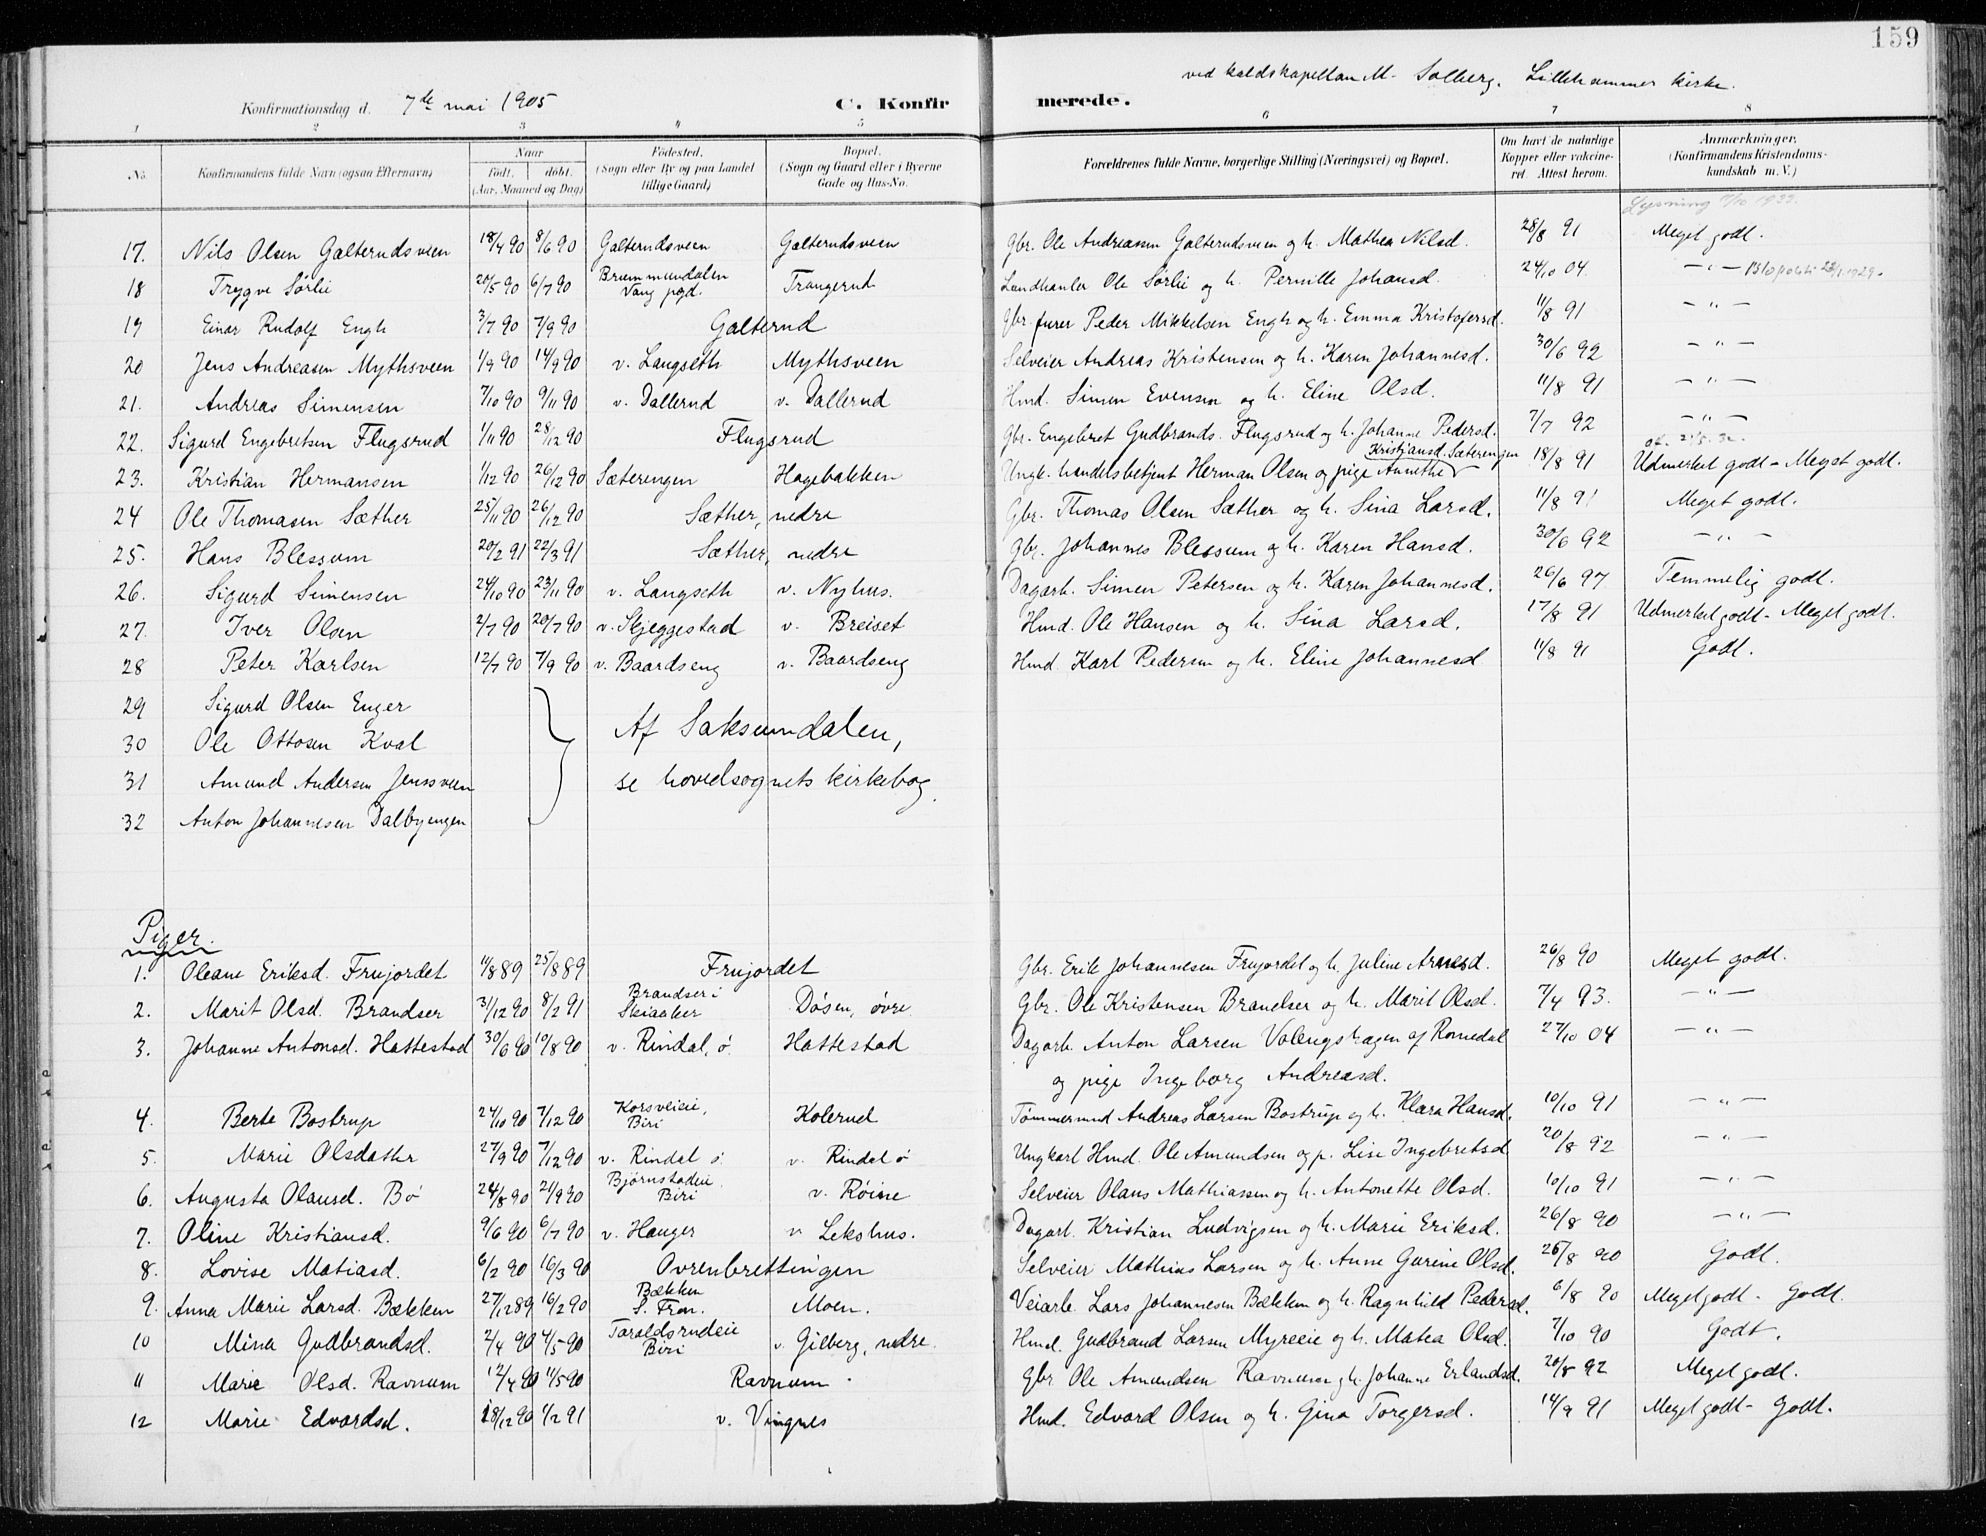 159
ved kaldskapellan M. Solberg. Lillehammer kirke.
Konfirmationsdag d. 7de mai 1905 C. Konfirmerede.
1 2 3 4 5 6 7 8
No. Konfirmandens fulde Navn (ogsaa Efternavn) Naar født. døbt. (Aar, Maaned og Dag) Fødested. (Sogn eller By og paa Landet tillige Gaard) Bopæl. (Sogn og Gaard eller i Byerne Gade og Hus-No. Forældrenes fulde Navne, borgerlige Stilling (Næringsvei) og Bopæl. Om havt de naturlige Kopper eller vakcineret. Attest herom. Anmærkninger. (Konfirmandens Kristendomskundskab m. V.)
Lysning 7/10 1933.
17. Nils Olsen Galterudsveen 18/4 90 8/6 90 Galterudsveen Galterudsveen Gbr. Ole Andreassen Galterudsveen og h. Mathea Nilsd. 28/8 91 Meget godt.
18 Trygve Sørlie 20/5 90 6/7 90 Brummundalen Vang pgd. Trangerud Landhanler Ole Sørlie og h. Pernille Johansd. 24/10 04. — " —
19 Einar Rudolf Engh 3/7 90 7/9 90 Galterud Gbr. furer Peder Mikkelsen Engh og h. Emma Kristofersd. 11/8 91 — " —
20 Jens Andreasen Mythsveen 1/9 90 14/9 90 v. Langseth Mythsveen Selveier Andreas Kristensen og h. Karen Johannesd. 30/6 92 — " —
21. Andreas Simensen 7/10 90 9/11 90 v. Dallerud v. Dallerud Hmd. Simen Evensen og h. Eline Olsd. 11/8 91 — " —
22. Sigurd Engebretsen Flugsrud 1/11 90 28/12 90 Flugsrud Gbr. Engebret Gudbrands. Flugsrud og h. Johanne Pedersd. 7/7 92 — " —
23. Kristian Hermansen 1/12 90 26/12 90 Sæterengen Hagebakken Ungk. handelsbetjent Herman Olsen og pige Annethe Kristjansd. Sæterengen 18/8 91 Udmerket godt - Meget godt.
24 Ole Thomasen Sæther 25/11 90 26/12 90 Sæther, nedre Gbr. Thomas Olsen Sæther og h. Sina Larsd. 11/8 91 Meget godt.
25. Hans Blessum 20/2 91 22/3 91 Sæther, nedre Gbr. Johannes Blessum og h. Karen Hansd. 30/6 92 — " —
26. Sigurd Simensen 24/10 90 23/11 90 v. Langseth v. Nyhus. Dagarb. Simen Petersen og h. Karen Johannesd. 26/6 97 Temmelig godt.
27. Iver Olsen 2/7 90 20/7 90 v. Skjeggestad v. Breiset Hmd. Ole Hansen og h. Sina Larsd. 17/8 91 Udmerket godt - Meget godt.
28 Peter Karlsen 12/7 90 7/9 90 v. Baardseng v. Baardseng Hmd. Karl Pedersen og h. Eline Johannesd 11/8 91 Godt.
29 Sigurd Olsen Enger
30 Ole Ottosen Kval Af Saksumdalen,
31 Amund Andersen Jensveen se hovedsognets kirkebog.
32 Anton Johannesen Dalbyengen
Piger.
1. Oleane Eriksd. Frujordet 11/8 89 25/8 89 Frujordet Gbr. Erik Johannesen Frujordet og h. Juline Arnesd. 26/8 90 Meget godt.
2. Marit Olsd. Brandser 3/12 90 8/2 91 Brandser i Skiaaker Døsen, øvre. Gbr. Ole Kristensen Brandser og h. Marit Olsd. 7/4 93. — " —
3. Johanne Antonsd. Hattestad 30/6 90 10/8 90 v. Rindal, ø. Hattestad Dagarb. Anton Larsen Valengshagen af Romedal 27/10 04 — " —
og pige Ingeborg Andreasd.
4. Berte Bostrup 24/10 90 7/12 90 Korsveieie, Biri Kolerud Tømmermand Andreas Larsen Bostrup og h. Klara Hansd. 10/10 91 — " —
5. Marie Olsdatter 27/9 90 7/12 90 v. Rindal ø. v. Rindal ø Ungkarl Hmd. Ole Amundsen og p. Lise Ingebretsd 20/8 92 — " —
6. Augusta Olausd. Bø 24/8 90 21/9 90 Bjørnstadeie. Biri v. Røine Selveier Olaus Mathiassen og h. Antonette Olsd. 10/10 91 — " —
7. Oline Kristiansd. 9/6 90 6/7 90 v. Hauger v Lekshus. Dagarb. Kristian Ludvigsen og h. Marie Eriksd. 26/8 90 — " —
8. Lovise Matiasd. 6/2 90 16/3 90 Ovrenbrettingen Selveier Mathias Larsen og h. Anne Gurine Olsd. 26/8 90 Godt.
9. Anna Marie Larsd. Bækken 27/12 89 16/2 90 Bækken S. Fron. Moen. Veiarb. Lars Johannesen Bækken og h. Ragnhild Pedersd. 6/8 90 Meget godt - Godt.
10 Mina Gudbrandsd. 2/4 90 4/5 90 Taraldsrudeie Biri v. Gilberg, nedre. Hmd. Gudbrand Larsen Myreeie og h. Matea Olsd. 7/10 90 Godt.
11 Marie Olsd. Ravnum 12/4 90 11/5 90 Ravnum Gbr. Ole Amundsen Ravnum og h. Johanne Erlandsd. 20/8 92 Meget godt.
12 Marie Edvardsd. 28/12 90 1/2 91 v. Vingnes Hmd. Edvard Olsen og h. Gina Torgersd. 14/9 91 Meget godt - Godt.